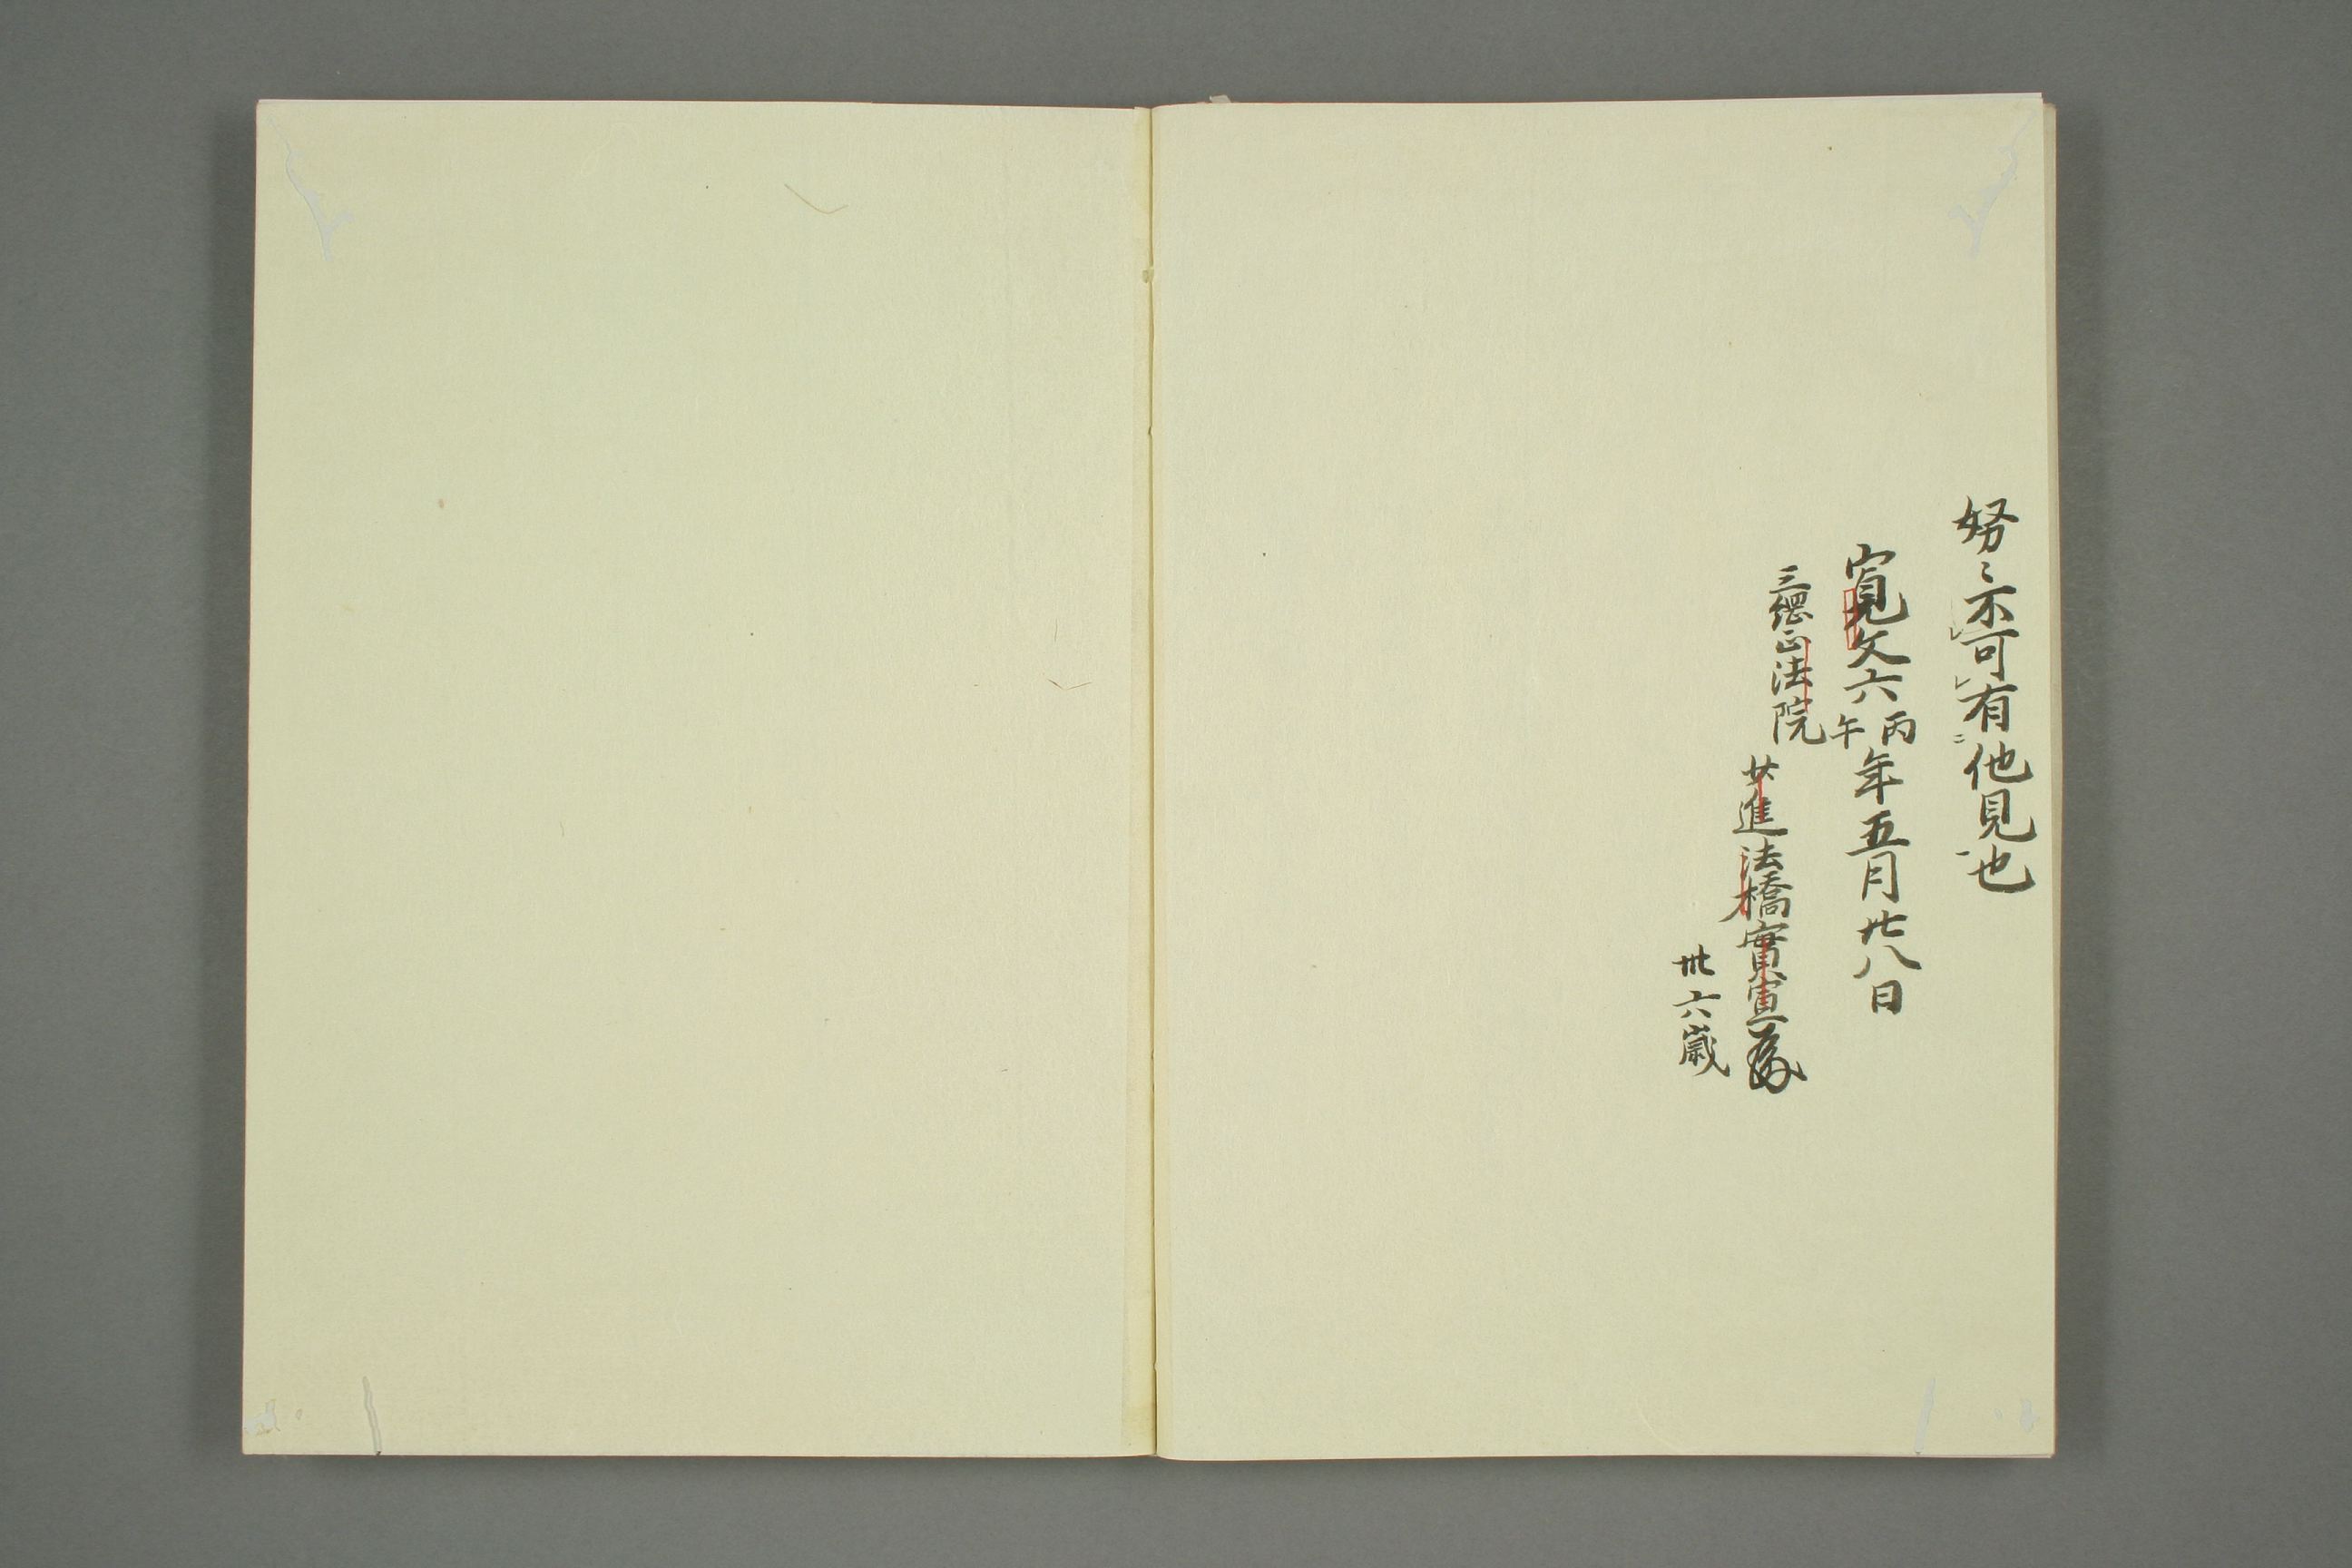 努〻不可有他見也
寛文六丙午年五月廿八日
三綱正法院
少進法橋實憲
卅六歳